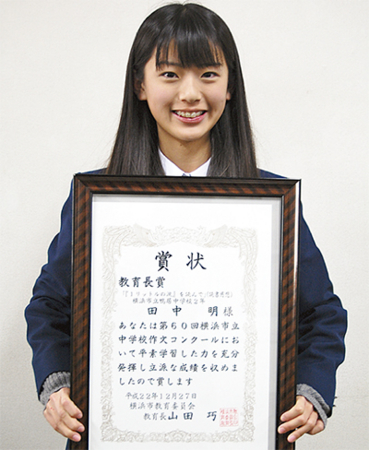 賞状
教育長賞
『1リットルの涙』を読んで
横浜市立鴨居中学校2年
田中 明様
あなたは第60回横浜市立
中学校作文コンクールにお
いて平素学習した力を充分
発揮し立派な成績を収めま
したので賞します
平成22年12月27日
横浜市教育委員会
教育長 山田 巧